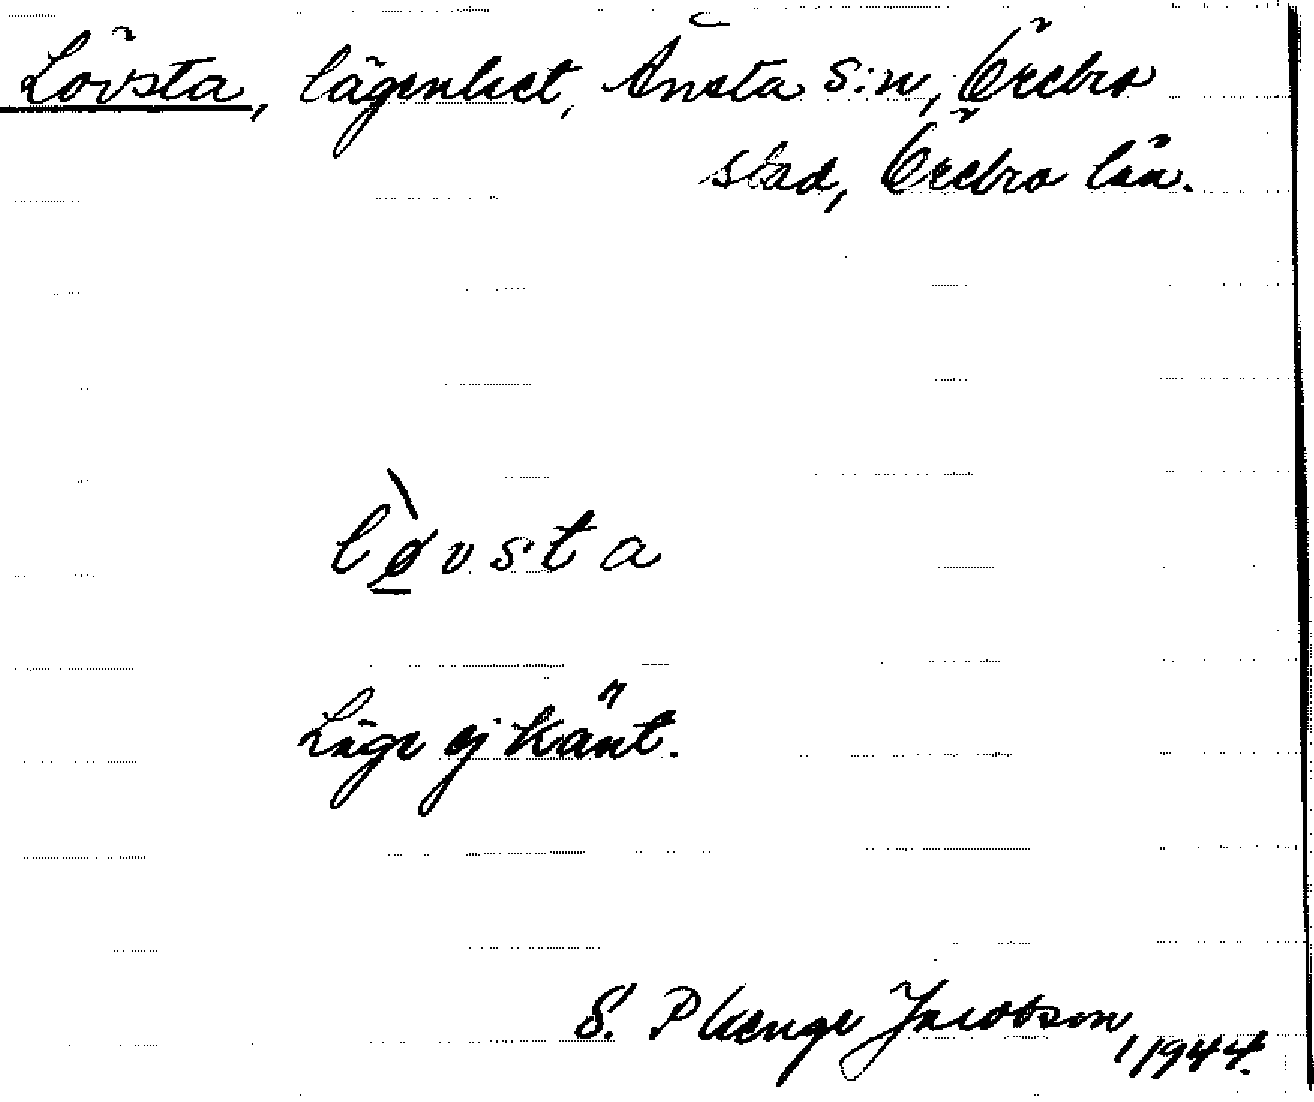 Lövsta, lägenhet, Ånsta s:n, Örebro
stad, Örebro län.
lø̀vsta
Läge ej känt.
S. Plenge Jacobson, 1944.